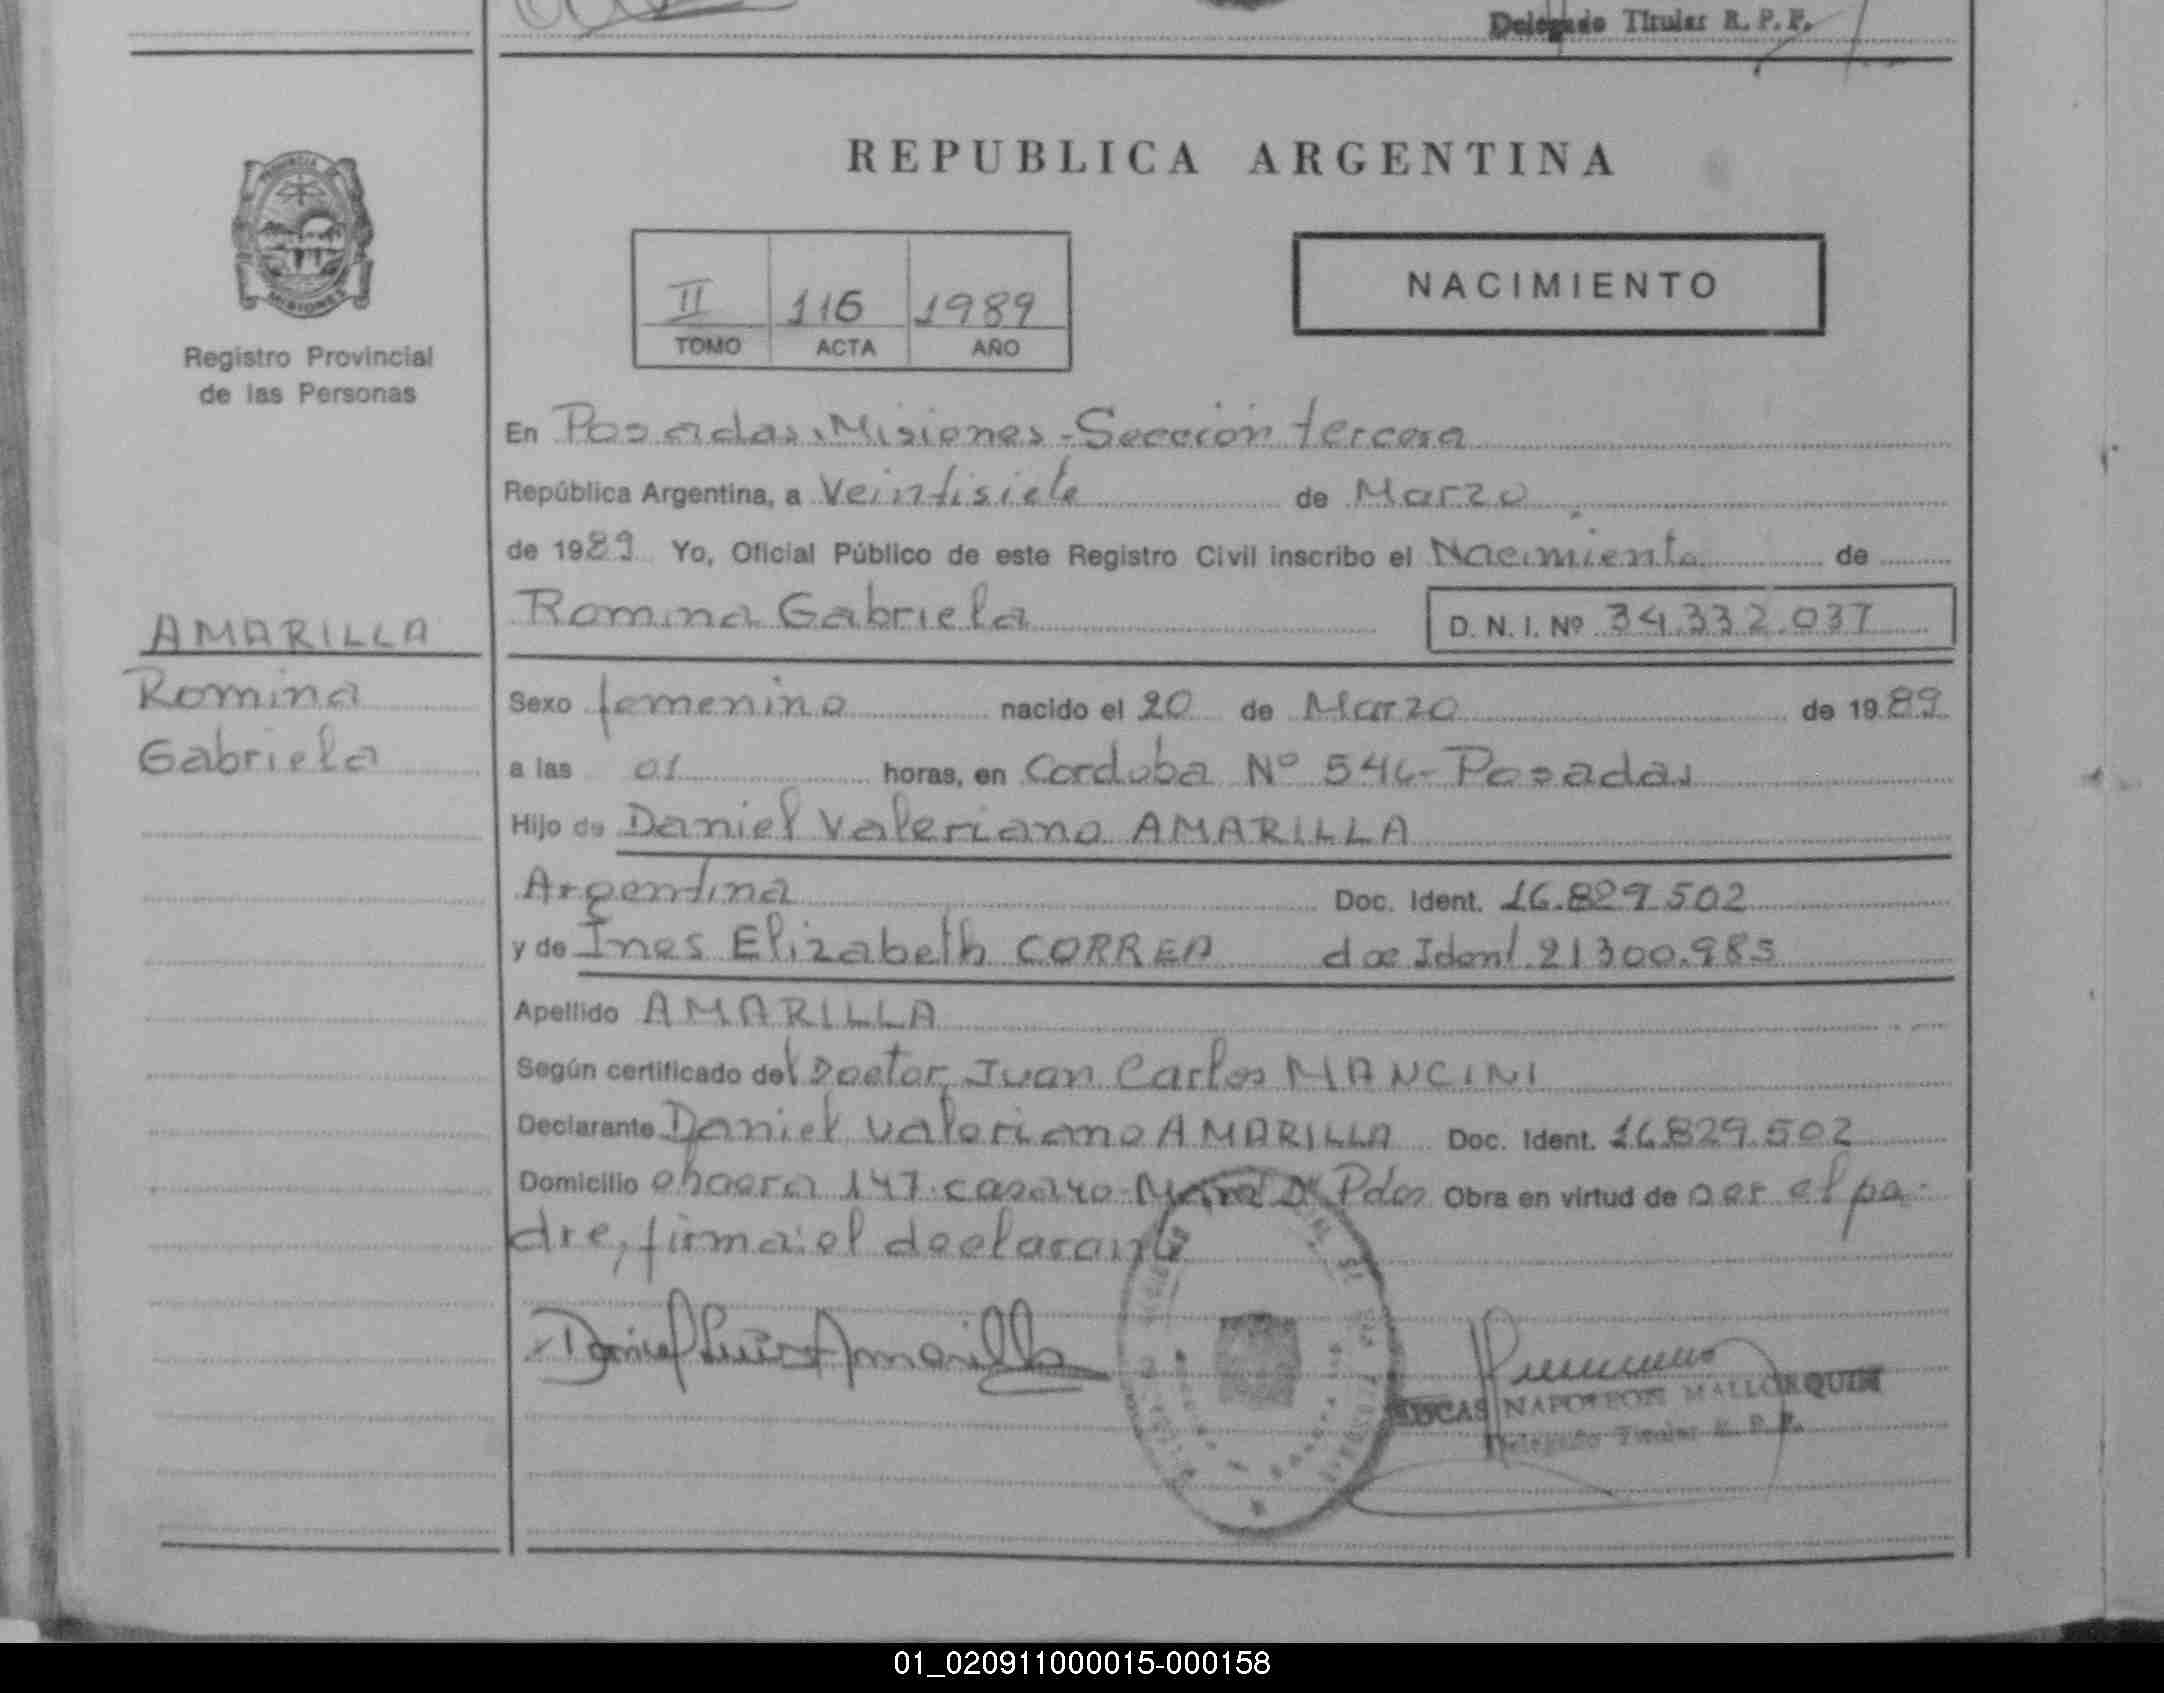 Delegado Titular R. P. F.
REPUBLICA ARGENTINA
PROVINCIA DE
MISIONES
Registro Provincial
de las Personas
NACIMIENTO
II 116 1989
TOMO ACTA AÑO
En Posadas, Misiones - Sección tercera
República Argentina, a Veintisiete de Marzo
de 1989 Yo, Oficial Público de este Registro Civil inscribo el Nacimiento de
Romina Gabriela D. N. I. Nº 34.332.037
AMARILLA
Romina
Gabriela
Sexo femenino nacido el 20 de Marzo de 1989
a las 01 horas, en Cordoba Nº 546- Posadas
Hijo de Daniel Valeriano AMARILLA
Argentina Doc. Ident. 16.829.502
y de Ines Elizabeth CORREA doc Ident. 21300.983
Apellido AMARILLA
Según certificado del Doctor, Juan Carlos MANCINI
Declarante Daniel Valeriano AMARILLA Doc. Ident. 16.829.502
Domicilio chacra 147. casa 40- Pdas Obra en virtud de ser el pa-
dre, firma: el declarante
Daniel Amarilla
LUCAS NAPOLEON MALLORQUIN
Delegado Titular R. P. F.
01_020911000015-000158